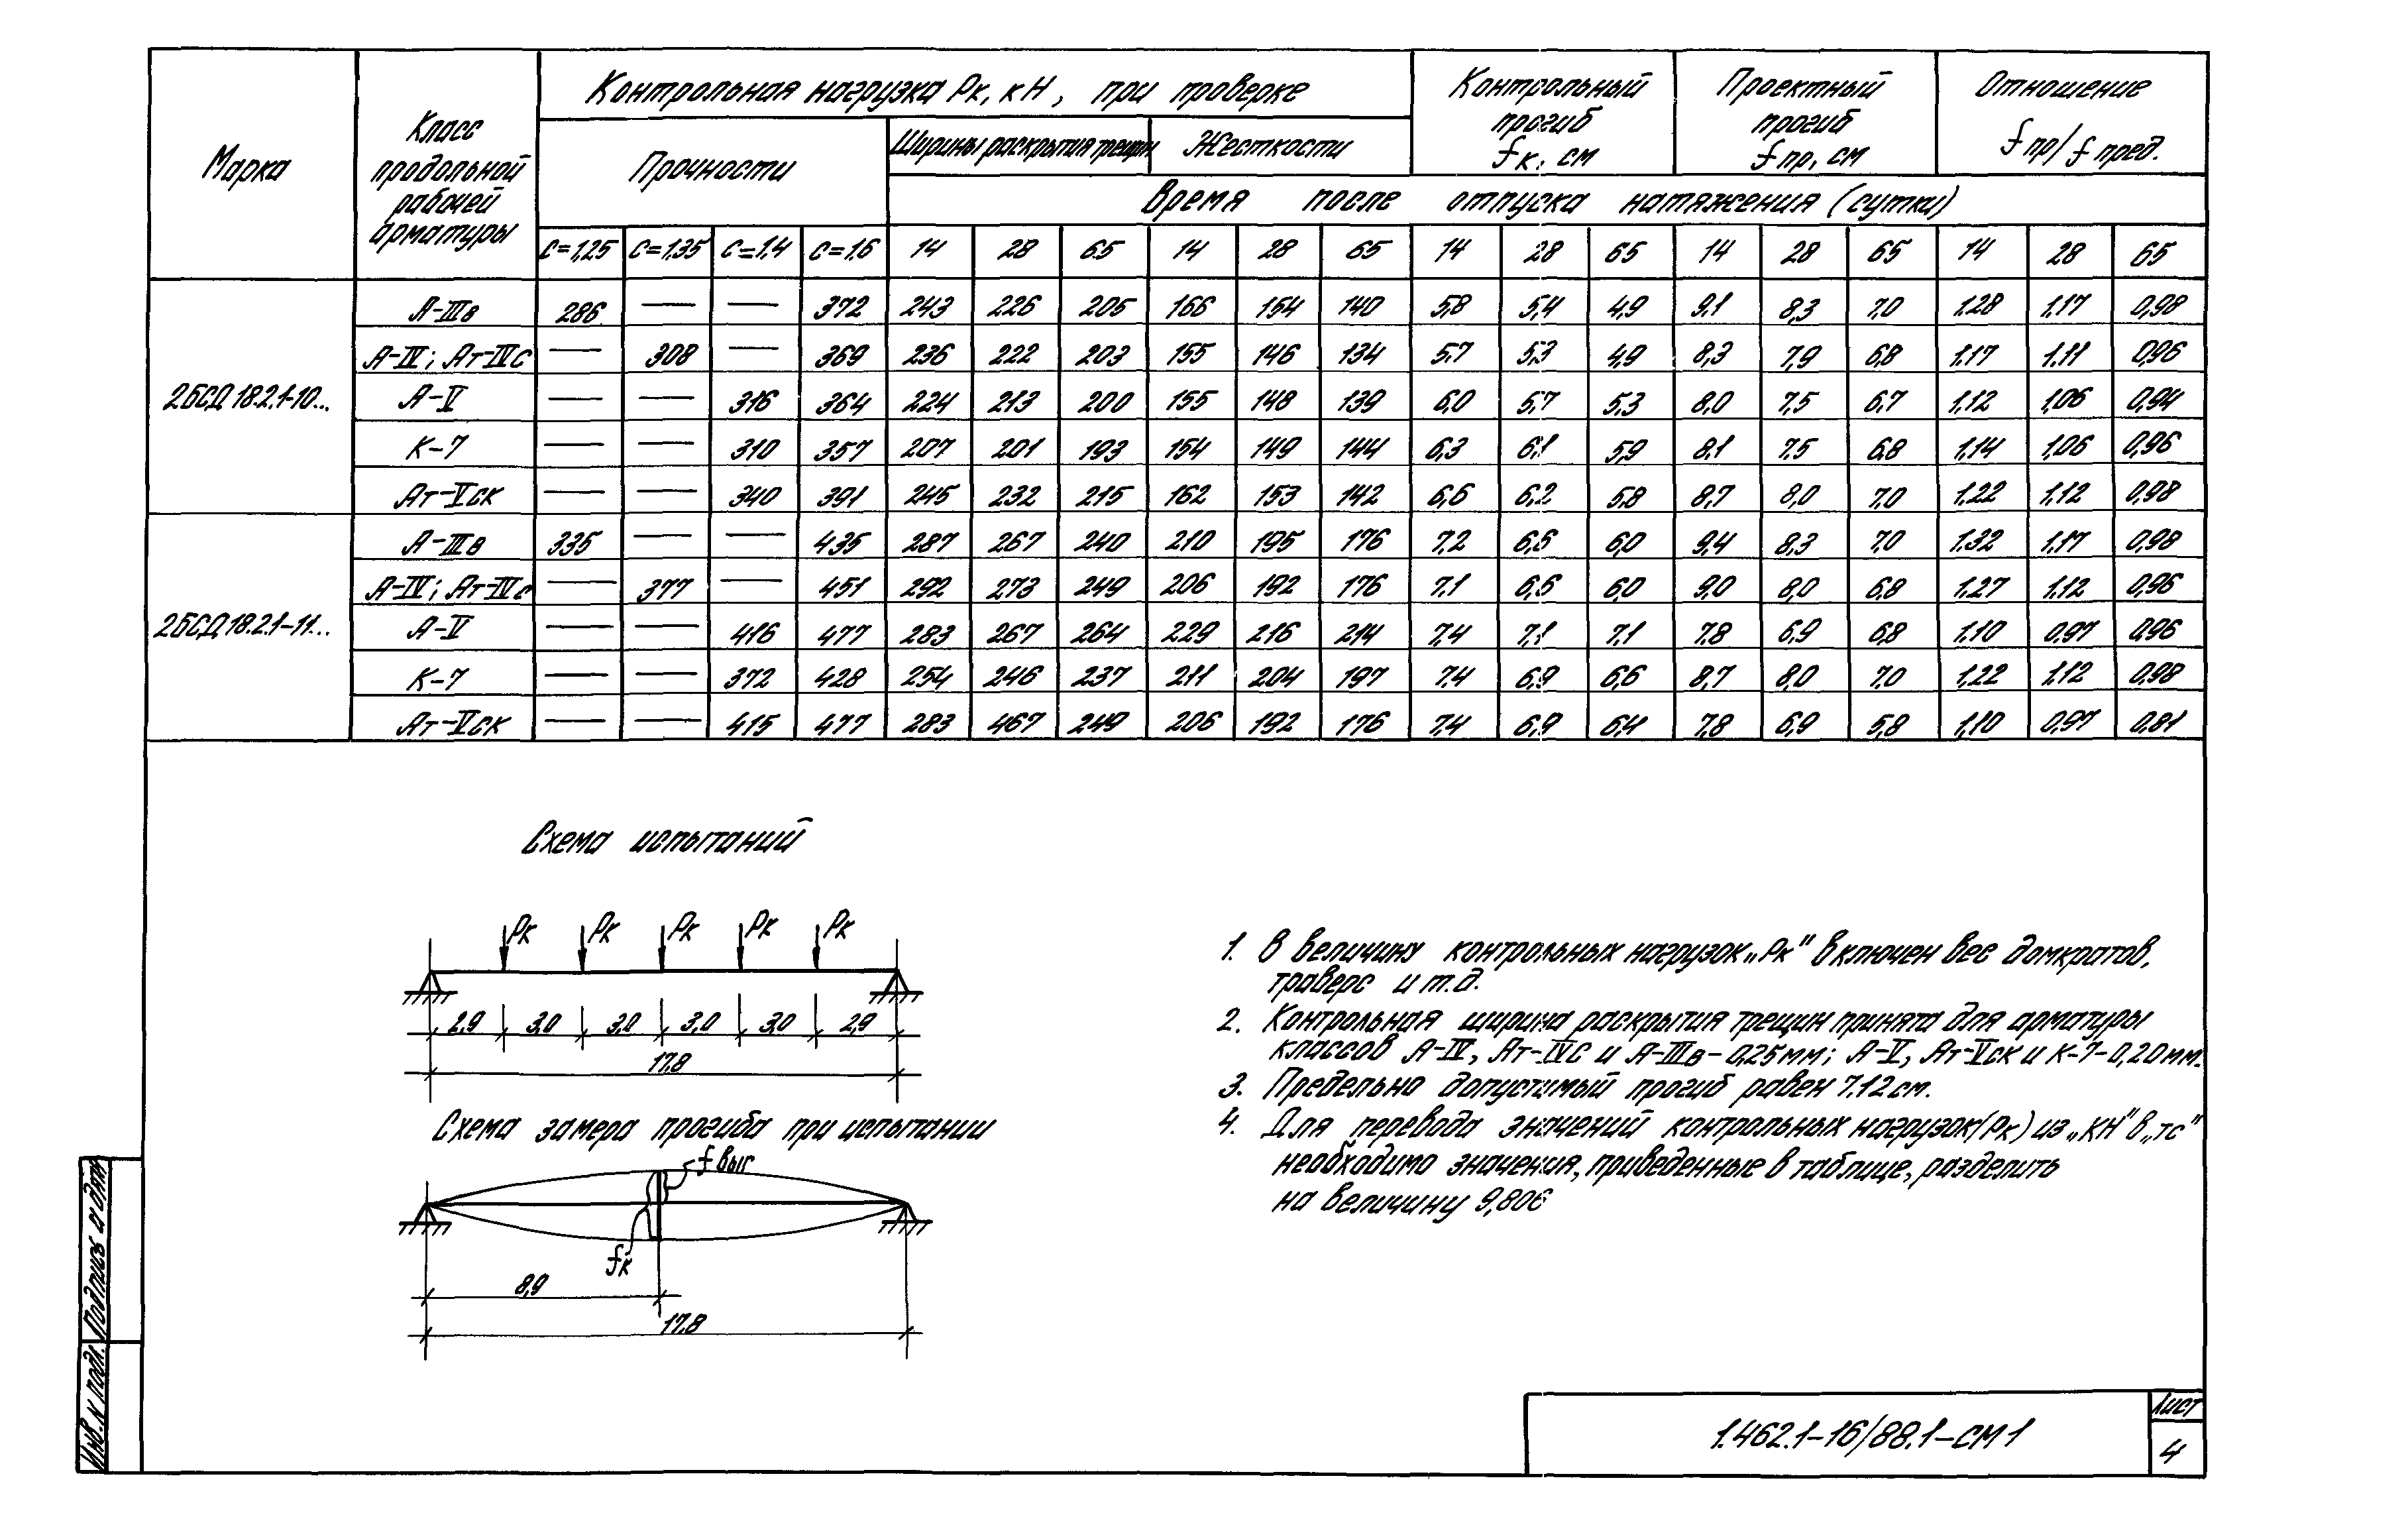 Марка
Класс продольной рабочей арматуры
Контрольная нагрузка Рк, кН, при проверке
Контрольный прогиб fк, см
Проектный прогиб fпр, см
Отношение fпр/fпред.
Прочности
Ширины раскрытия трещин
Жесткости
Время после отпуска натяжения (сутки)
С=1,25 С=1,35 С=1,4 С=1,6 14 28 65 14 28 65 14 28 65 14 28 65 14 28 65
2БСД18.2.1-10...
А-IIIв 286 — — 372 243 226 205 166 154 140 5,8 5,4 4,9 9,1 8,3 7,0 1,28 1,17 0,98
А-IV; Ат-IVс — 308 — 369 236 222 203 155 146 134 5,7 5,3 4,9 8,3 7,9 6,8 1,17 1,11 0,96
А-V — — 316 364 224 213 200 155 148 139 6,0 5,7 5,3 8,0 7,5 6,7 1,12 1,06 0,94
К-7 — — 310 357 207 201 193 154 149 144 6,3 6,1 5,9 8,1 7,5 6,8 1,14 1,06 0,96
Ат-Vск — — 340 391 245 232 215 162 153 142 6,6 6,2 5,8 8,7 8,0 7,0 1,22 1,12 0,98
2БСД18.2.1-11...
А-IIIв 335 — — 435 287 267 240 210 195 176 7,2 6,6 6,0 9,4 8,3 7,0 1,32 1,17 0,98
А-IV; Ат-IVс — 377 — 451 292 273 249 206 192 176 7,1 6,6 6,0 9,0 8,0 6,8 1,27 1,12 0,96
А-V — — 416 477 283 267 264 229 216 214 7,4 7,1 7,1 7,8 6,9 6,8 1,10 0,97 0,96
К-7 — — 372 428 254 246 237 211 204 197 7,4 6,9 6,6 8,7 8,0 7,0 1,22 1,12 0,98
Ат-Vск — — 415 477 283 467 249 206 192 176 7,4 6,9 6,4 7,8 6,9 5,8 1,10 0,97 0,81
Схема испытаний
Рк Рк Рк Рк Рк
2,9 3,0 3,0 3,0 3,0 2,9
17,8
Схема замера прогиба при испытании
fвыг
fк
8,9
17,8
1. В величину контрольных нагрузок „Рк" включен вес домкратов,
траверс и т.д.
2. Контрольная ширина раскрытия трещин принята для арматуры
классов А-IV, Ат-IVС и А-IIIв-0,25мм; А-V, Ат-Vск и К-7-0,20мм.
3. Предельно допустимый прогиб равен 7,12см.
4. Для перевода значений контрольных нагрузок(Рк) из „КН" в „тс"
необходимо значения, приведенные в таблице, разделить
на величину 9,806
Инв. N подл. Подпись и дата
1.462.1-16/88.1-СМ1
Лист
4